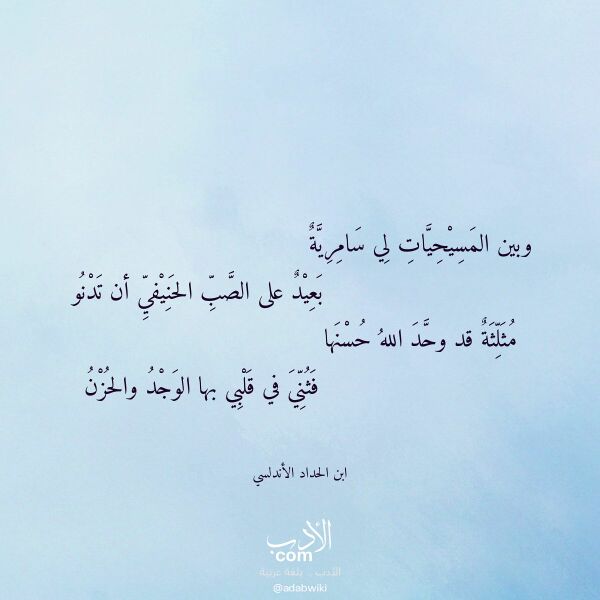 وبين المَسِيْحِيَّاتِ لِي سَامِرِيَّةٌ
بَعِيْدٌ على الصَّبِّ الحَنِيْفيِّ أن تَدْنُو
مُثَلِّثَةٌ قد وحَّدَ اللهُ حُسْنَها
فَثُنِّيَ في قَلْبِي بها الوَجْدُ والحُزْنُ
ابن الحداد الأندلسي
الأدب
com
الأدب .. بلغة عربية
@adabwiki